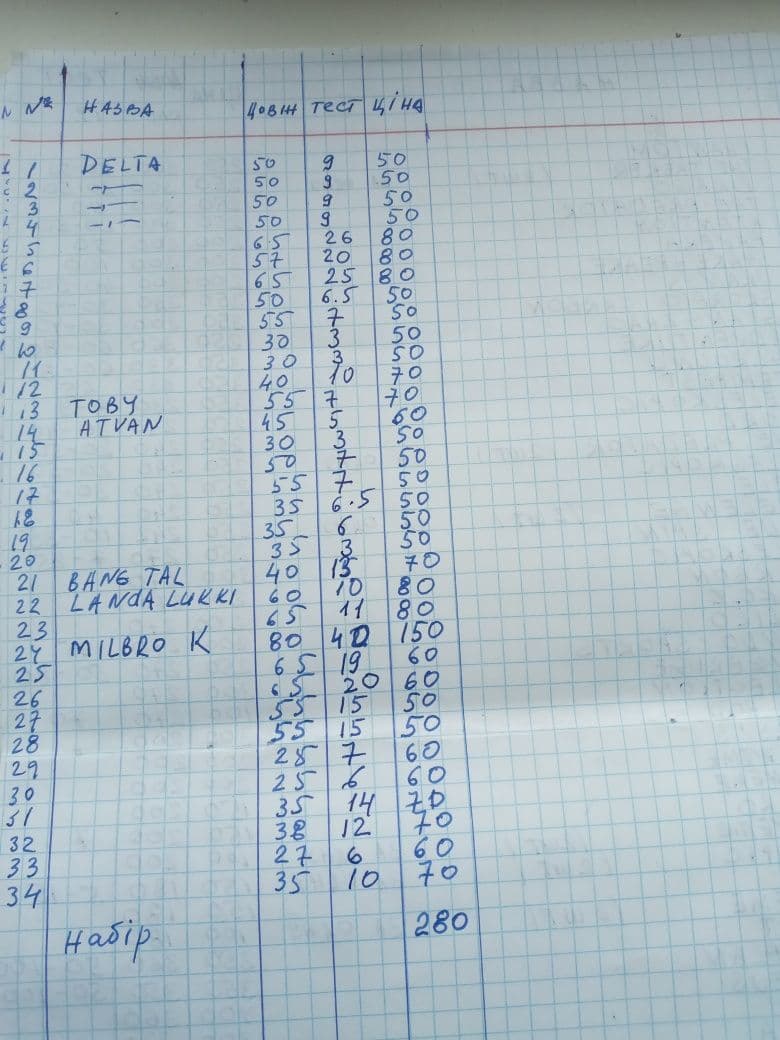 № НАЗВА ДОВЖ ТЕСТ ЦІНА
1 DELTA 50 9 50
2 —〃— 50 9 50
3 —〃— 50 9 50
4 —〃— 50 9 50
5 65 26 80
6 57 20 80
7 65 25 80
8 50 6.5 50
9 55 7 50
10 30 3 50
11 30 3 50
12 40 10 70
13 TOBY 55 7 70
14 ATVAN 45 5 60
15 30 3 50
16 50 7 50
17 55 7 50
18 35 6.5 50
19 35 6 50
20 35 3 50
21 BANG TAL 40 13 70
22 LANDA LUKKI 60 10 80
23 65 11 80
24 MILBRO K 80 40 150
25 65 19 60
26 65 20 60
27 55 15 50
28 55 15 50
29 25 7 60
30 25 6 60
31 35 14 70
32 38 12 70
33 27 6 60
34 35 10 70
Набір 280